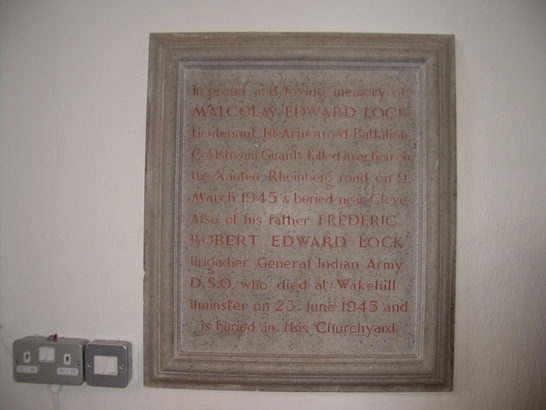 In proud and loving memory of
MALCOLM EDWARD LOCK
Lieutenant 1st Armoured Battalion
Coldstream Guards Killed in action on
the Xanten Rheinberg road on 9
March 1945 & buried near Cleve
Also of his father FREDERIC
ROBERT EDWARD LOCK
Brigadier General Indian Army
D.S.O. who died at Wakehill
Ilminster on 23 June 1945 and
is buried in this Churchyard